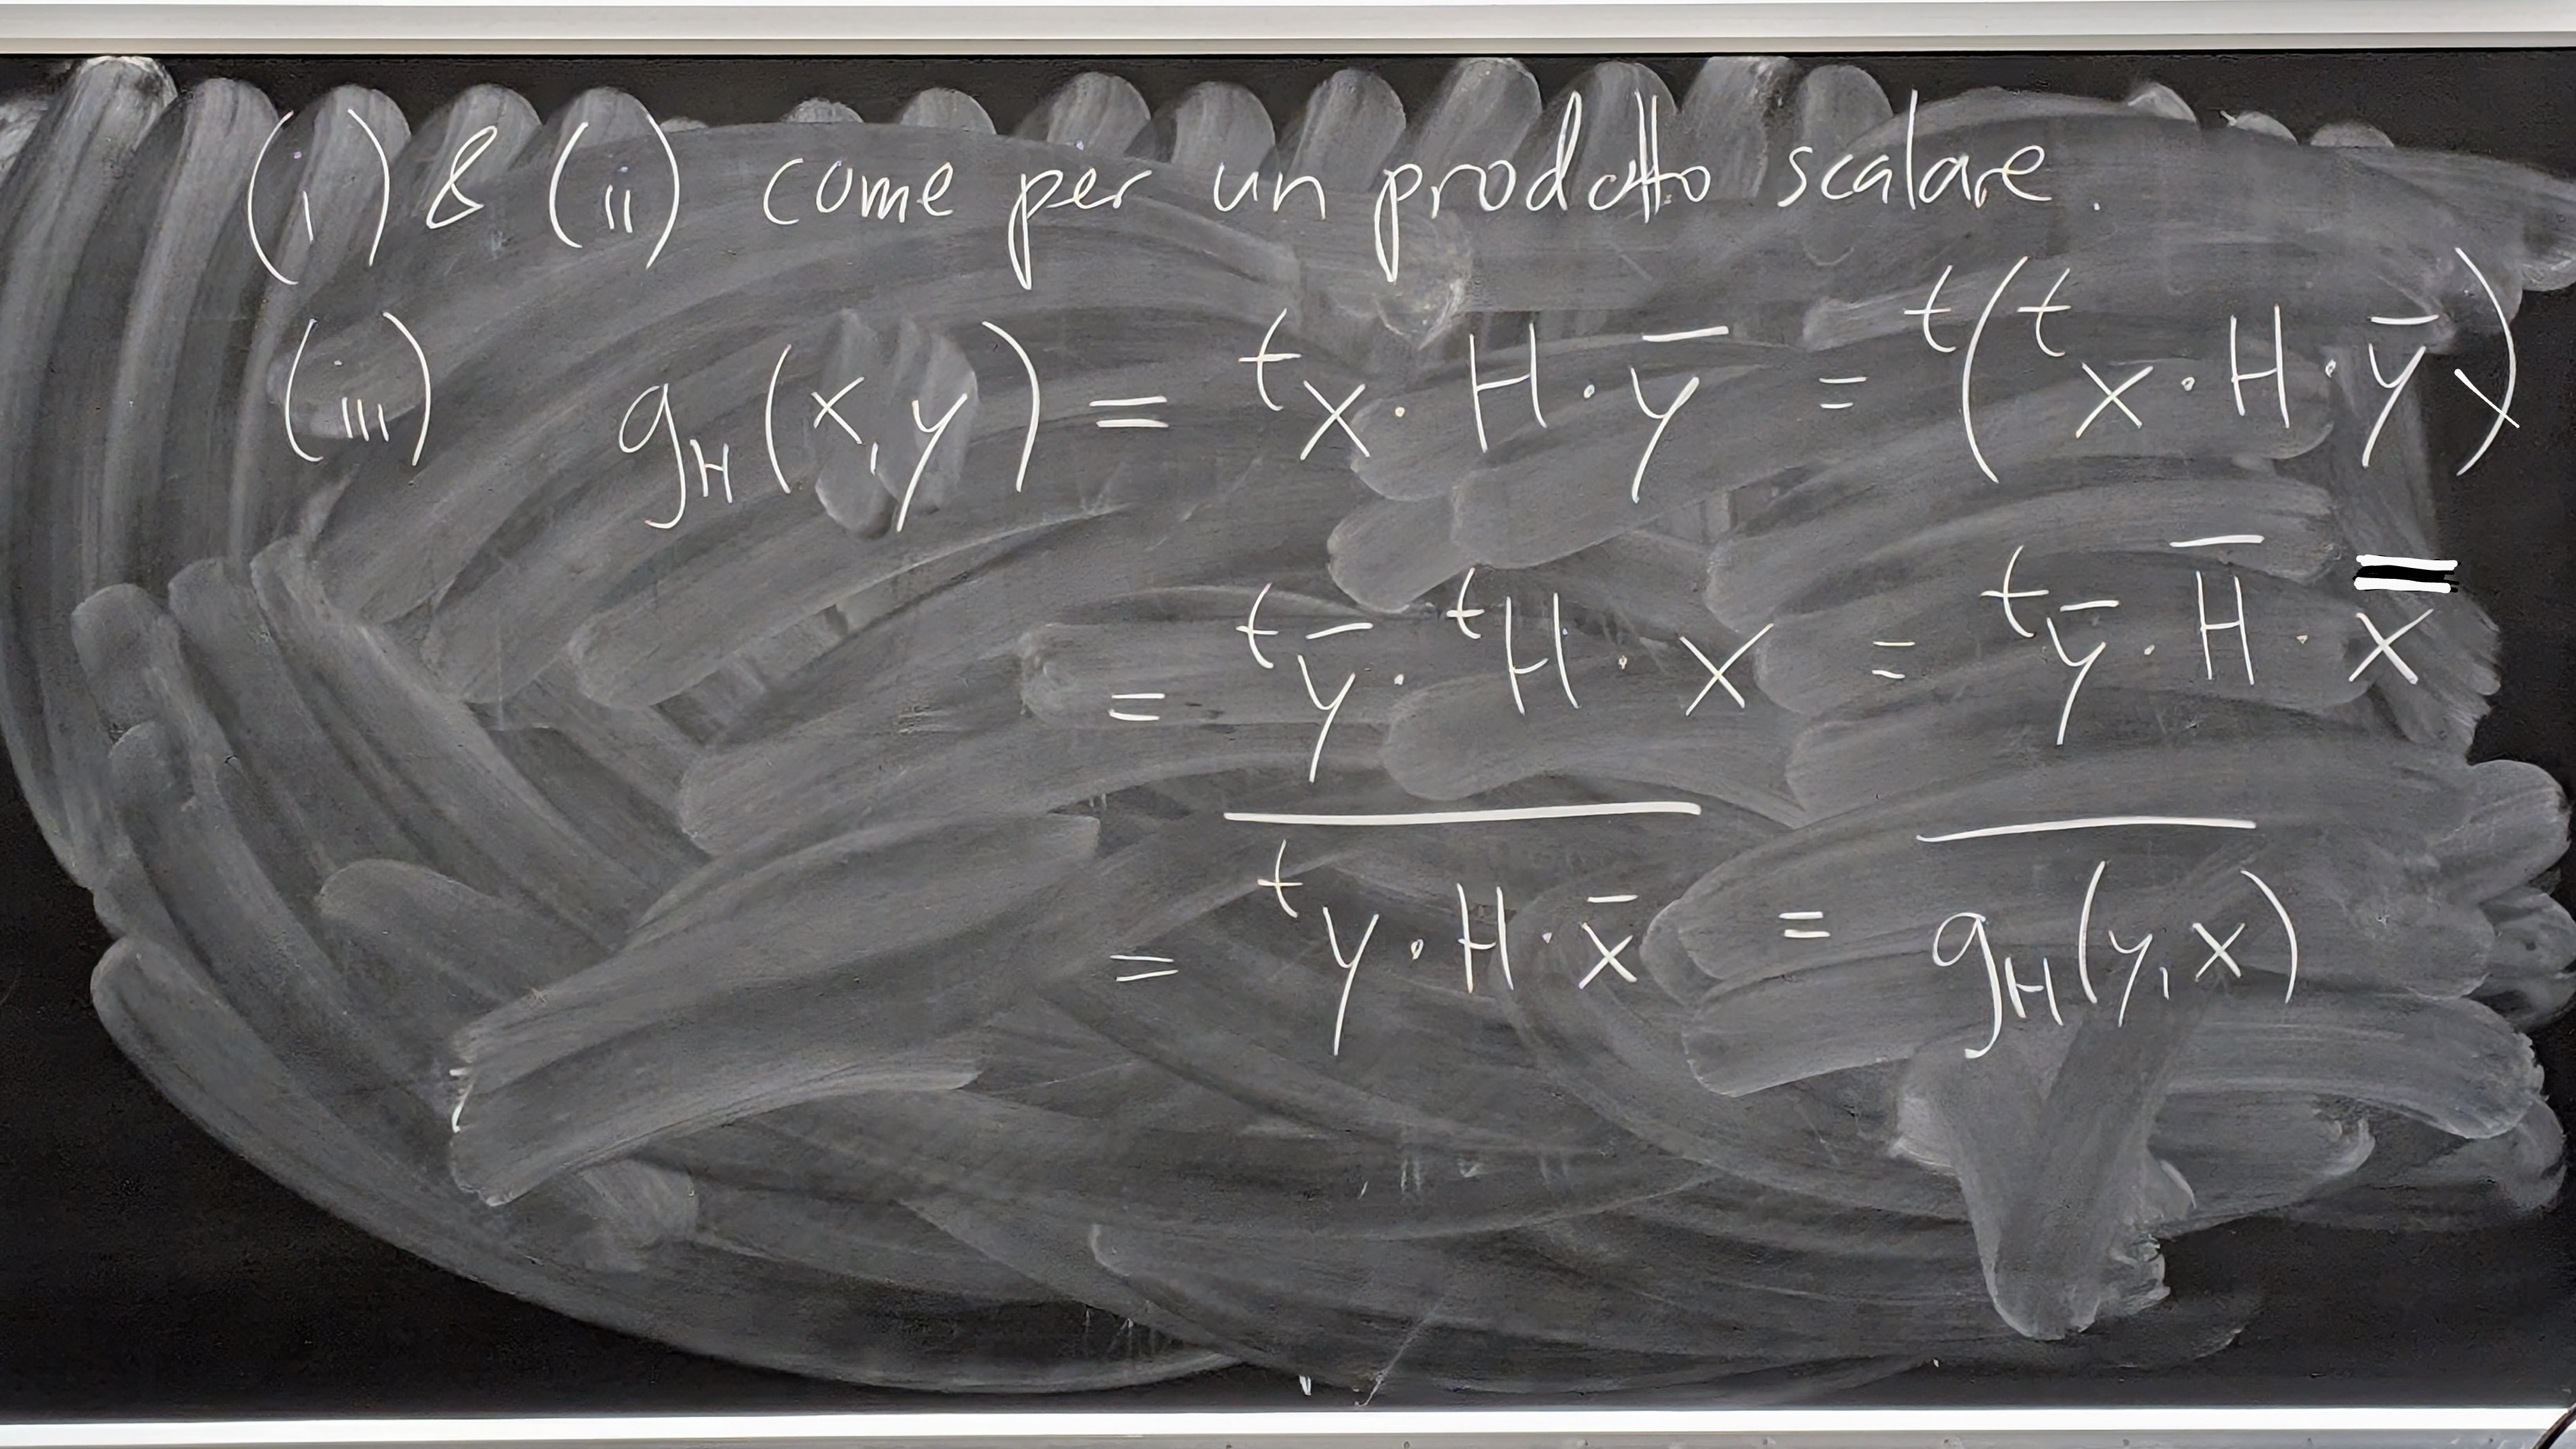 (i) & (ii) come per un prodotto scalare.
(iii) g_H(x,y) = ᵗx · H · y̅ = ᵗ(ᵗx · H · y̅)
= ᵗy̅ · ᵗH · x = ᵗy̅ · H̅ · x̿
= \overline{ᵗy · H · x̅} = \overline{g_H(y,x)}